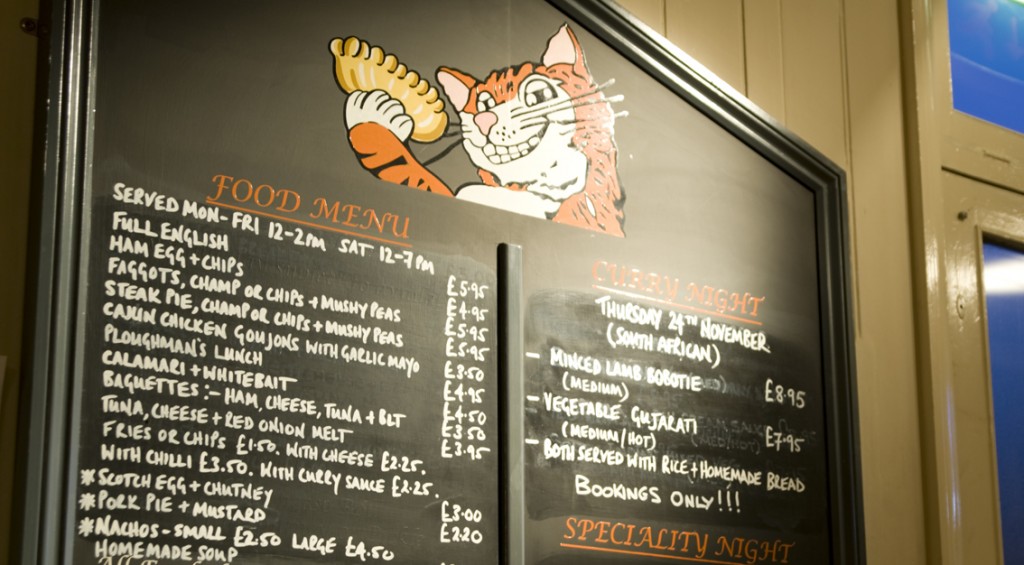 FOOD MENU
SERVED MON-FRI 12-2PM SAT 12-7PM
FULL ENGLISH £5.95
HAM EGG + CHIPS £4.95
FAGGOTS, CHAMP OR CHIPS + MUSHY PEAS £5.95
STEAK PIE, CHAMP OR CHIPS + MUSHY PEAS £5.95
CAJUN CHICKEN GOUJONS WITH GARLIC MAYO £3.50
PLOUGHMAN'S LUNCH £4.95
CALAMARI + WHITEBAIT £4.50
BAGUETTES:- HAM, CHEESE, TUNA + BLT £3.50
TUNA, CHEESE + RED ONION MELT £3.95
FRIES OR CHIPS £1.50. WITH CHEESE £2.25.
WITH CHILLI £3.50. WITH CURRY SAUCE £2.25.
*SCOTCH EGG + CHUTNEY £3.00
*PORK PIE + MUSTARD £2.20
*NACHOS - SMALL £2.50 LARGE £4.50
HOMEMADE SOUP
CURRY NIGHT
THURSDAY 24TH NOVEMBER
(SOUTH AFRICAN)
- MINCED LAMB BOBOTIE £8.95
(MEDIUM)
- VEGETABLE GUJARATI £7.95
(MEDIUM/HOT)
- BOTH SERVED WITH RICE + HOMEMADE BREAD
BOOKINGS ONLY!!!
SPECIALITY NIGHT